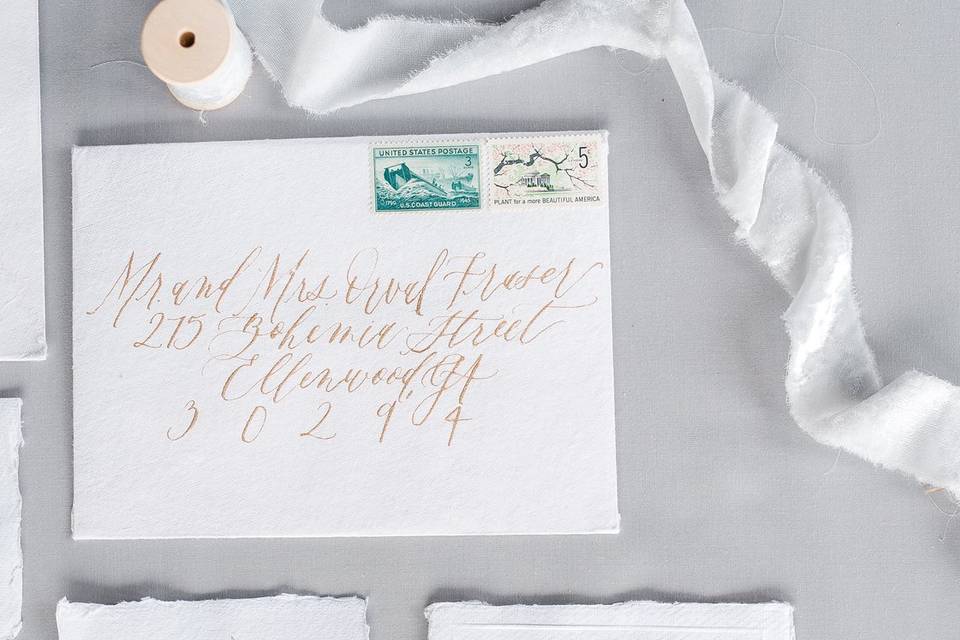 UNITED STATES POSTAGE
3
CENTS
1790 1945
U.S. COAST GUARD
5
PLANT for a more BEAUTIFUL AMERICA
Mr. and Mrs. Orval Fraser
275 Bohemia Street
Ellenwood, GA
30294